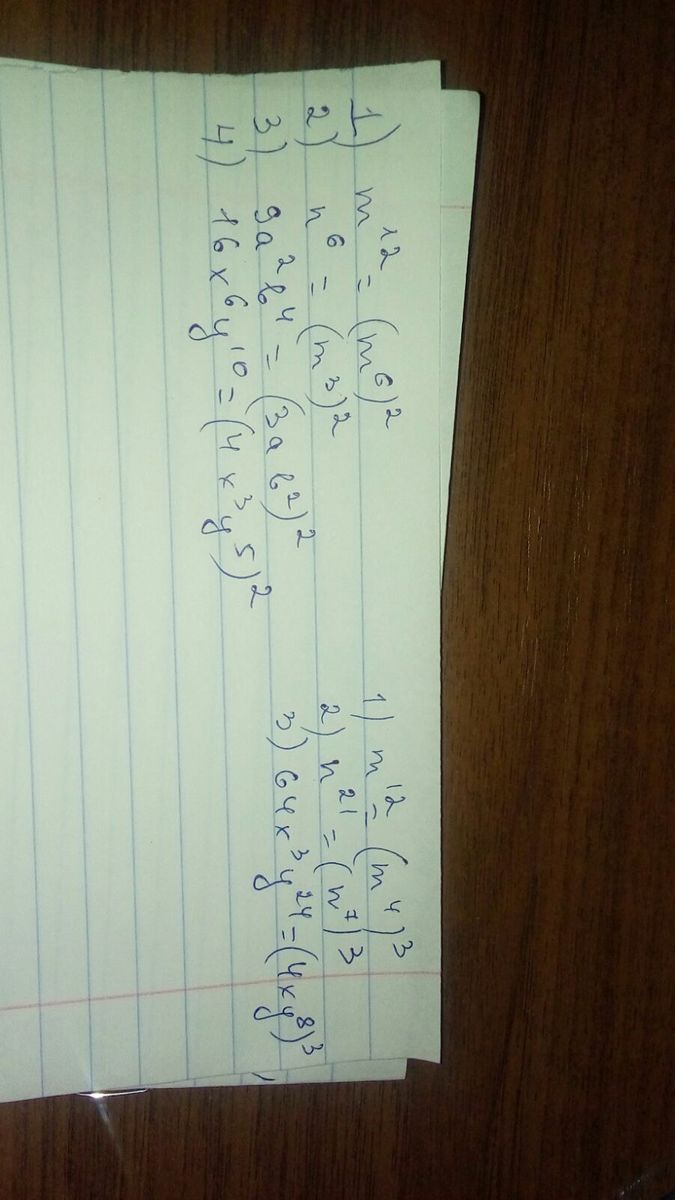 1) m¹² = (m⁶)²
2) n⁶ = (m³)²
3) 9a²b⁴ = (3ab²)²
4) 16x⁶y¹⁰ = (4x³y⁵)²
1) m¹² = (m⁴)³
2) n²¹ = (n⁷)³
3) 64x³y²⁴ = (4xy⁸)³